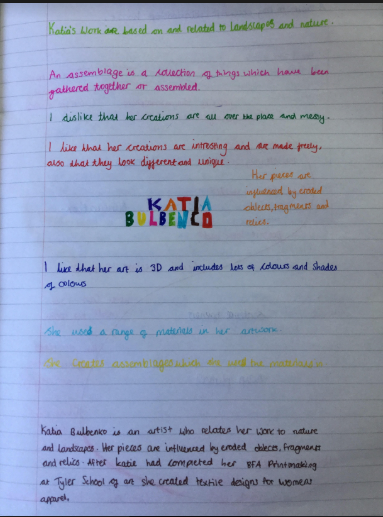 Katia's work are based on and related to landscapes and nature.
An assemblage is a collection of things which have been
gathered together or assembled.
I dislike that her creations are all over the place and messy.
I like that her creations are intresting and are made freely,
also that they look different and unique.
Her pieces are
influenced by eroded
objects, fragments and
relics.
KATIA
BULBENCO
I like that her art is 3D and includes lots of colours and shades
of colours
She used a range of materials in her artwork.
She creates assemblages which are the materials
Katia Bulbenko is an artist who relates her work to nature
and landscapes. Her pieces are influenced by eroded objects, fragments
and relics. After katie had completed her BFA Printmaking
at Tyler School of art she created textile designs for womens
apparel.